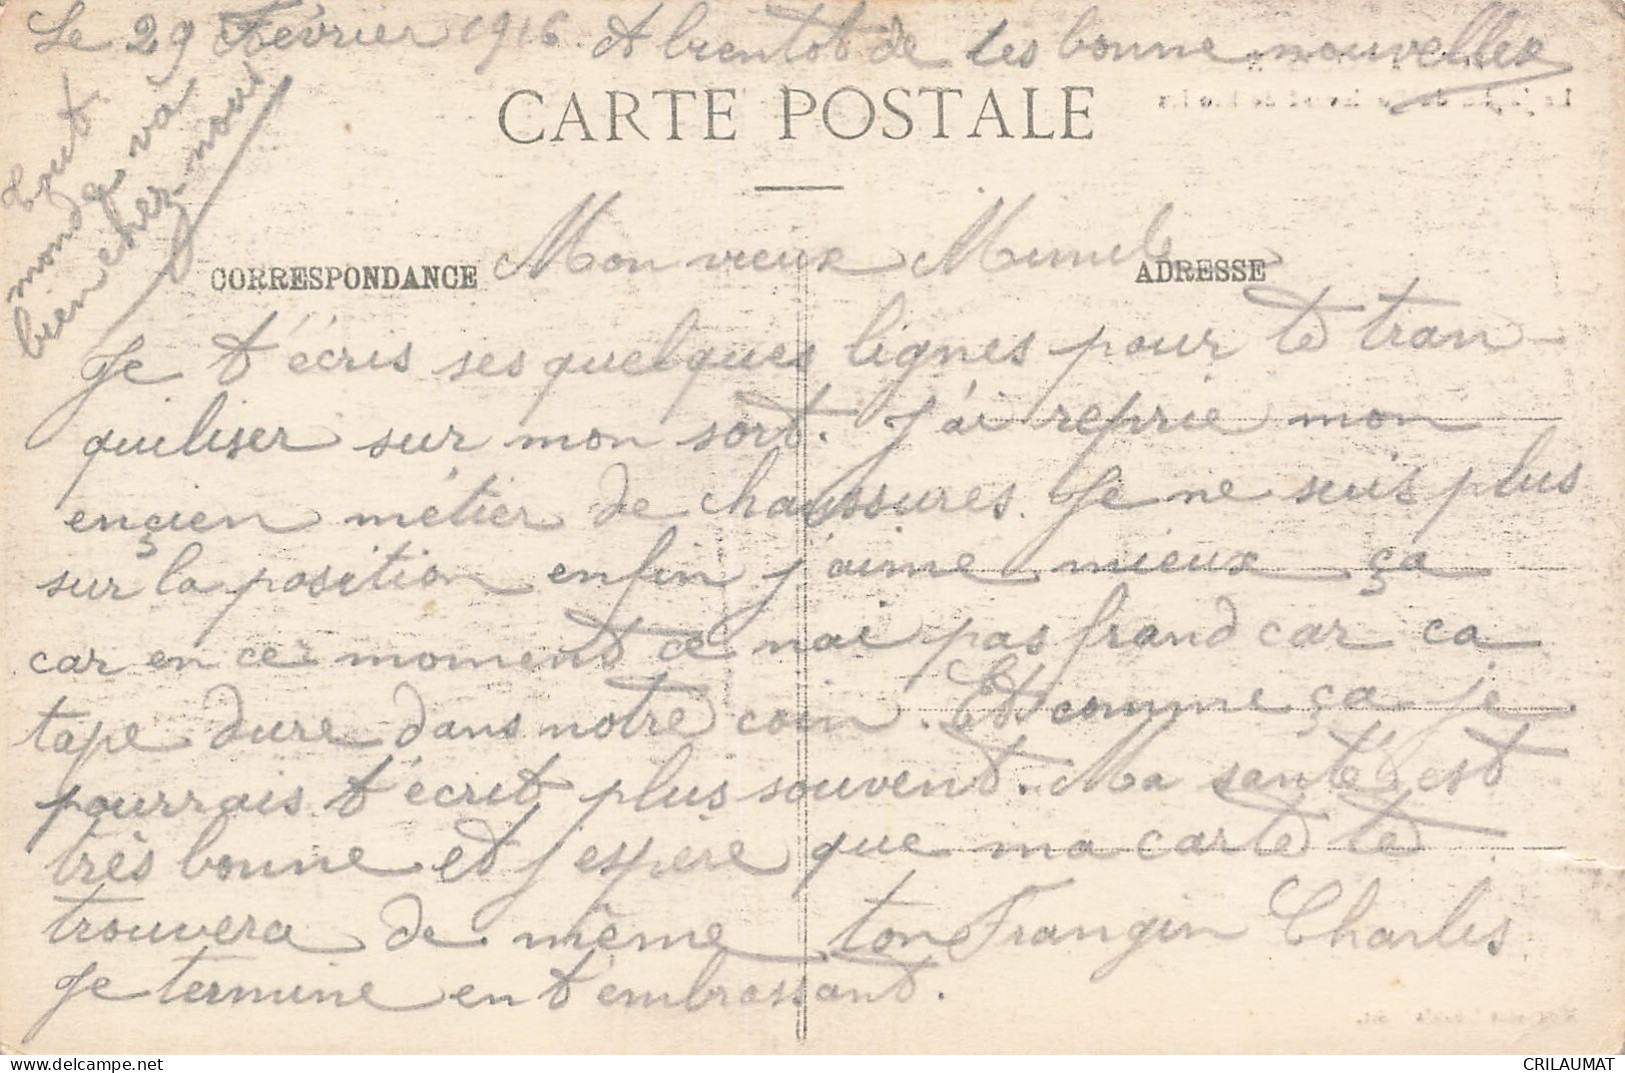 Le 29 Février 1916. A bientot de tes bonne nouvelles
CARTE POSTALE
tout
monde va
bien chez-nous
Mon vieux
CORRESPONDANCE
ADRESSE
Je t'écris ses quelques lignes pour te tran-
quiliser sur mon sort. J'ai reprie mon
ençien métier de chaussures. Je ne suis plus
sur la position enfin j'aime mieux ça
car en ce moment ce n'ai pas frand car ca
tape dure dans notre coin. Et comme ça je
pourrais t'écrit plus souvent. Ma santé est
très bonne et j'espère que ma carte te
trouvera de même ton Frangin Charles.
Je termine en t'embrassant.
CRILAUMAT